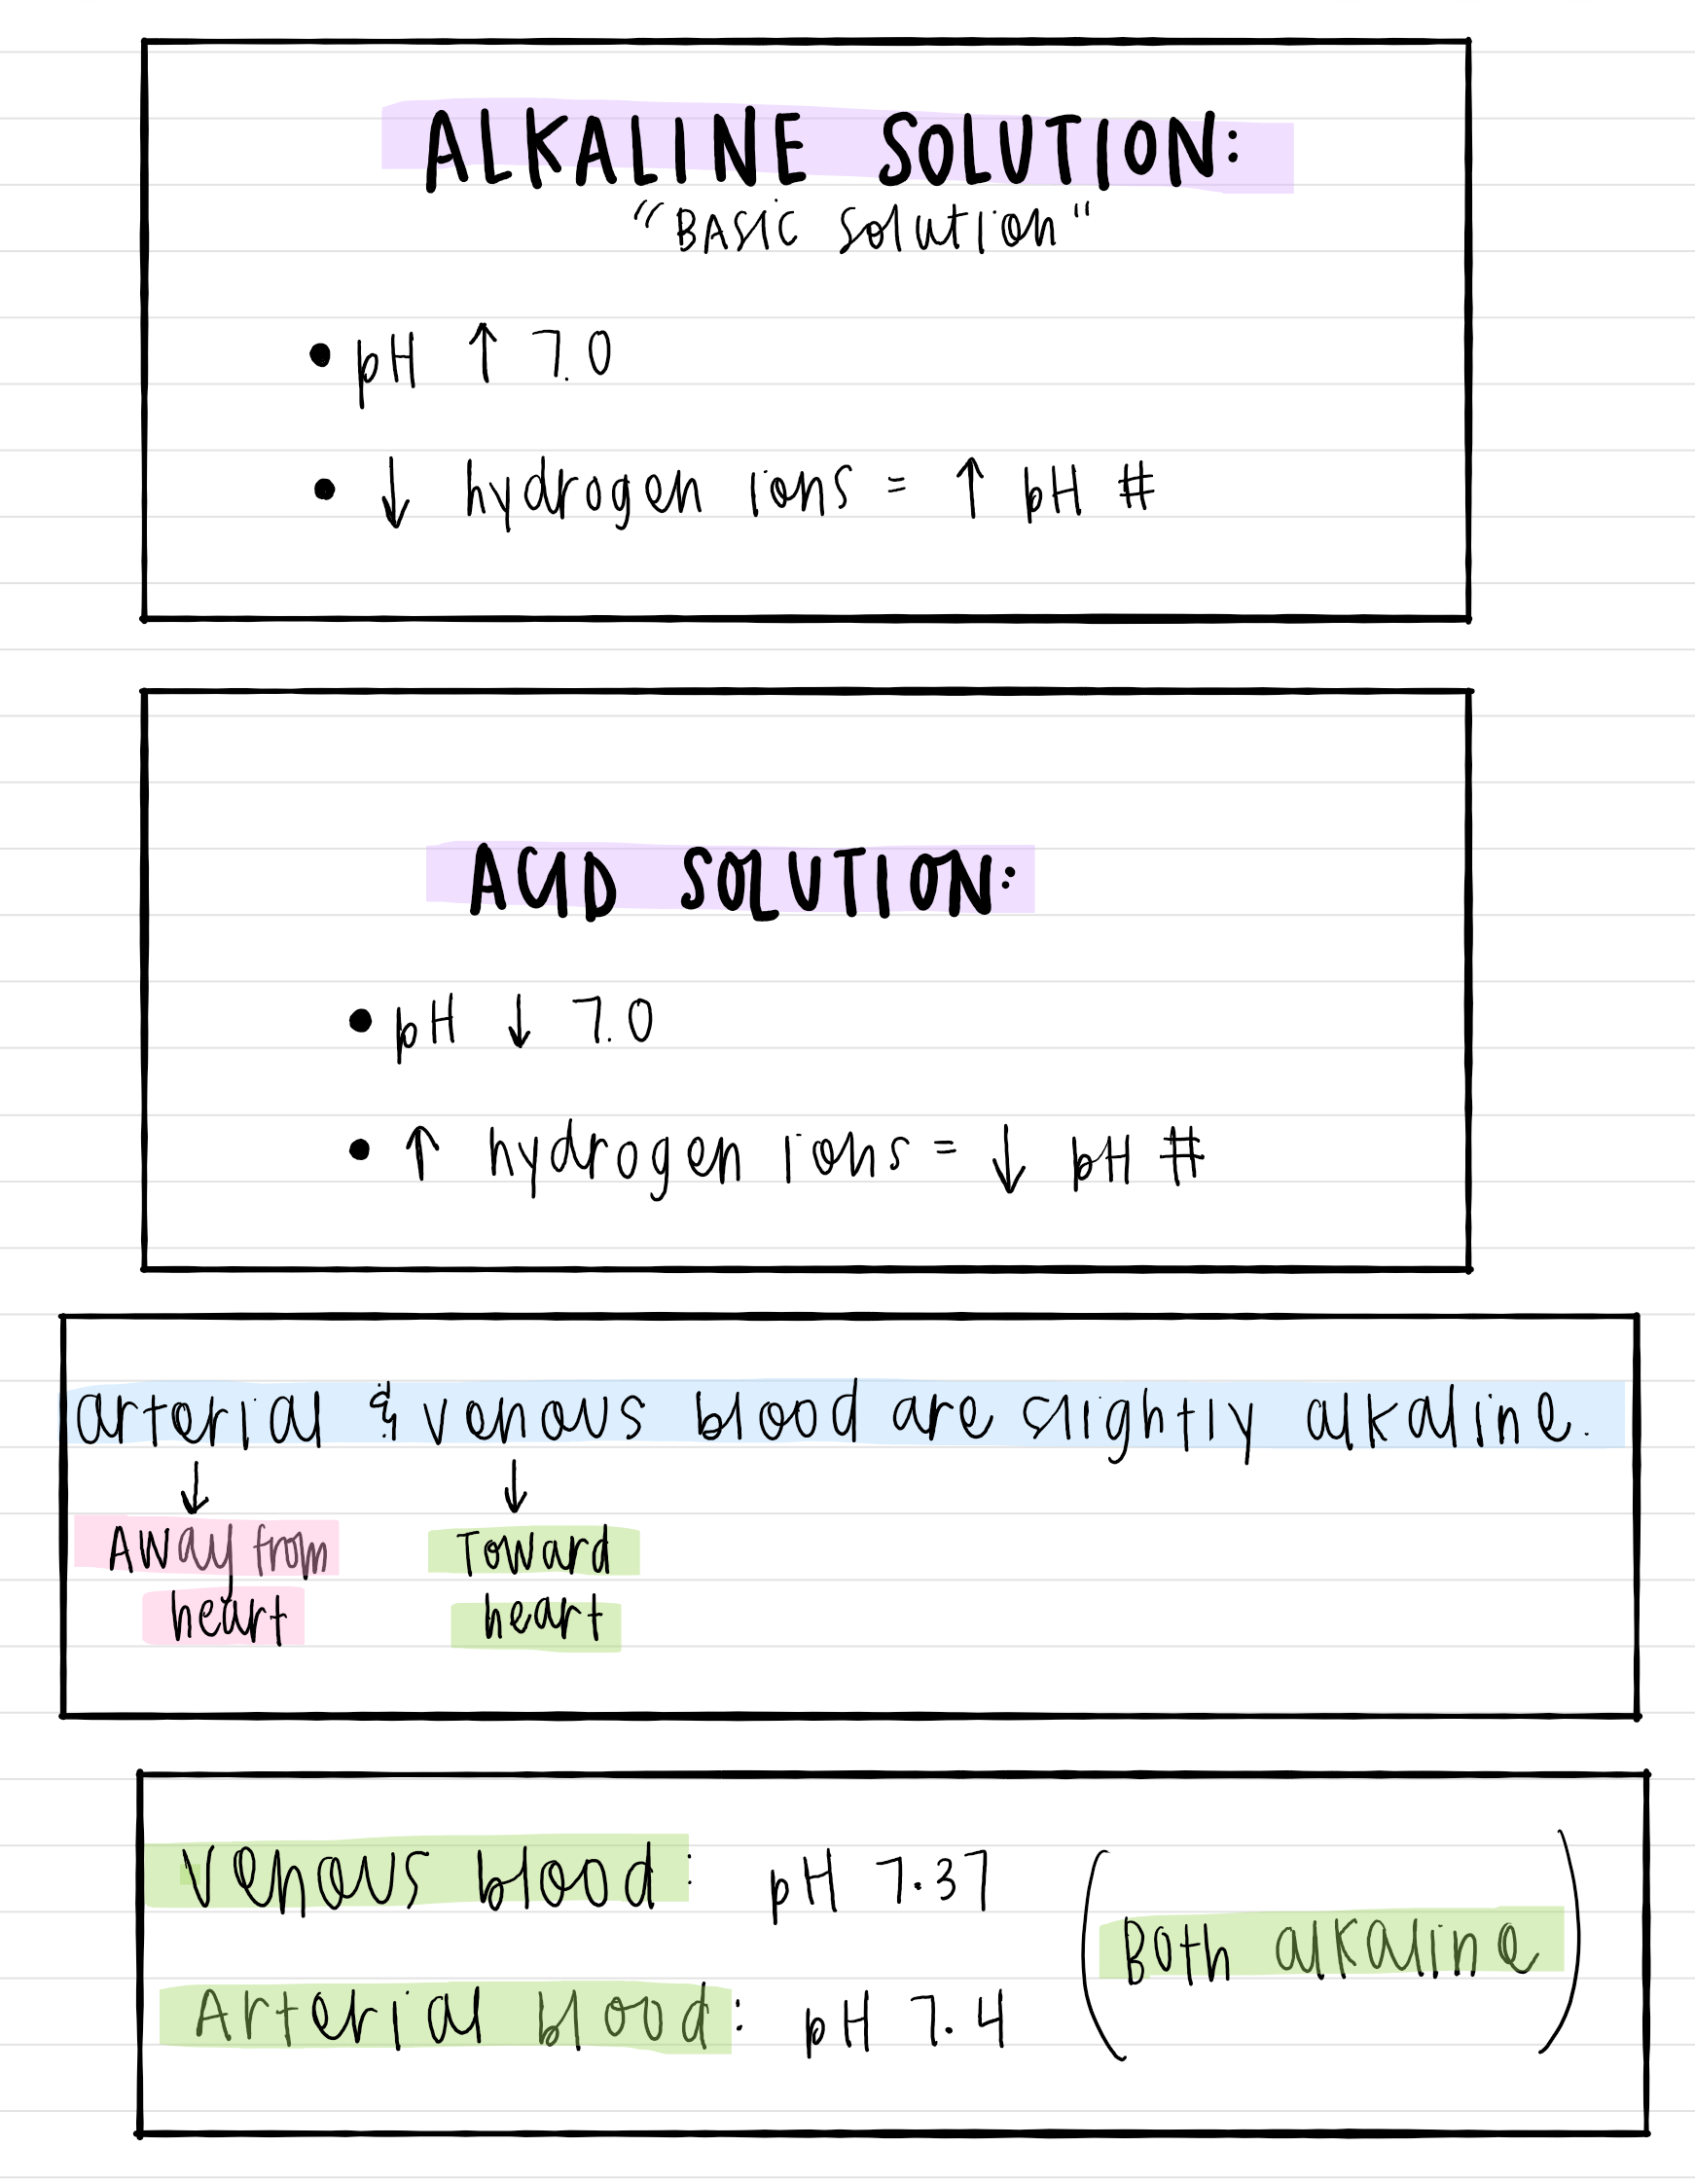 ALKALINE SOLUTION:
"BASIC solution"
• pH ↑ 7.0
• ↓ hydrogen ions = ↑ pH #
ACID SOLUTION:
• pH ↓ 7.0
• ↑ hydrogen ions = ↓ pH #
arterial & venous blood are slightly alkaline.
↓ ↓
Away from Toward
heart heart
Venous blood: pH 7.37
(Both alkaline)
Arterial blood: pH 7.4